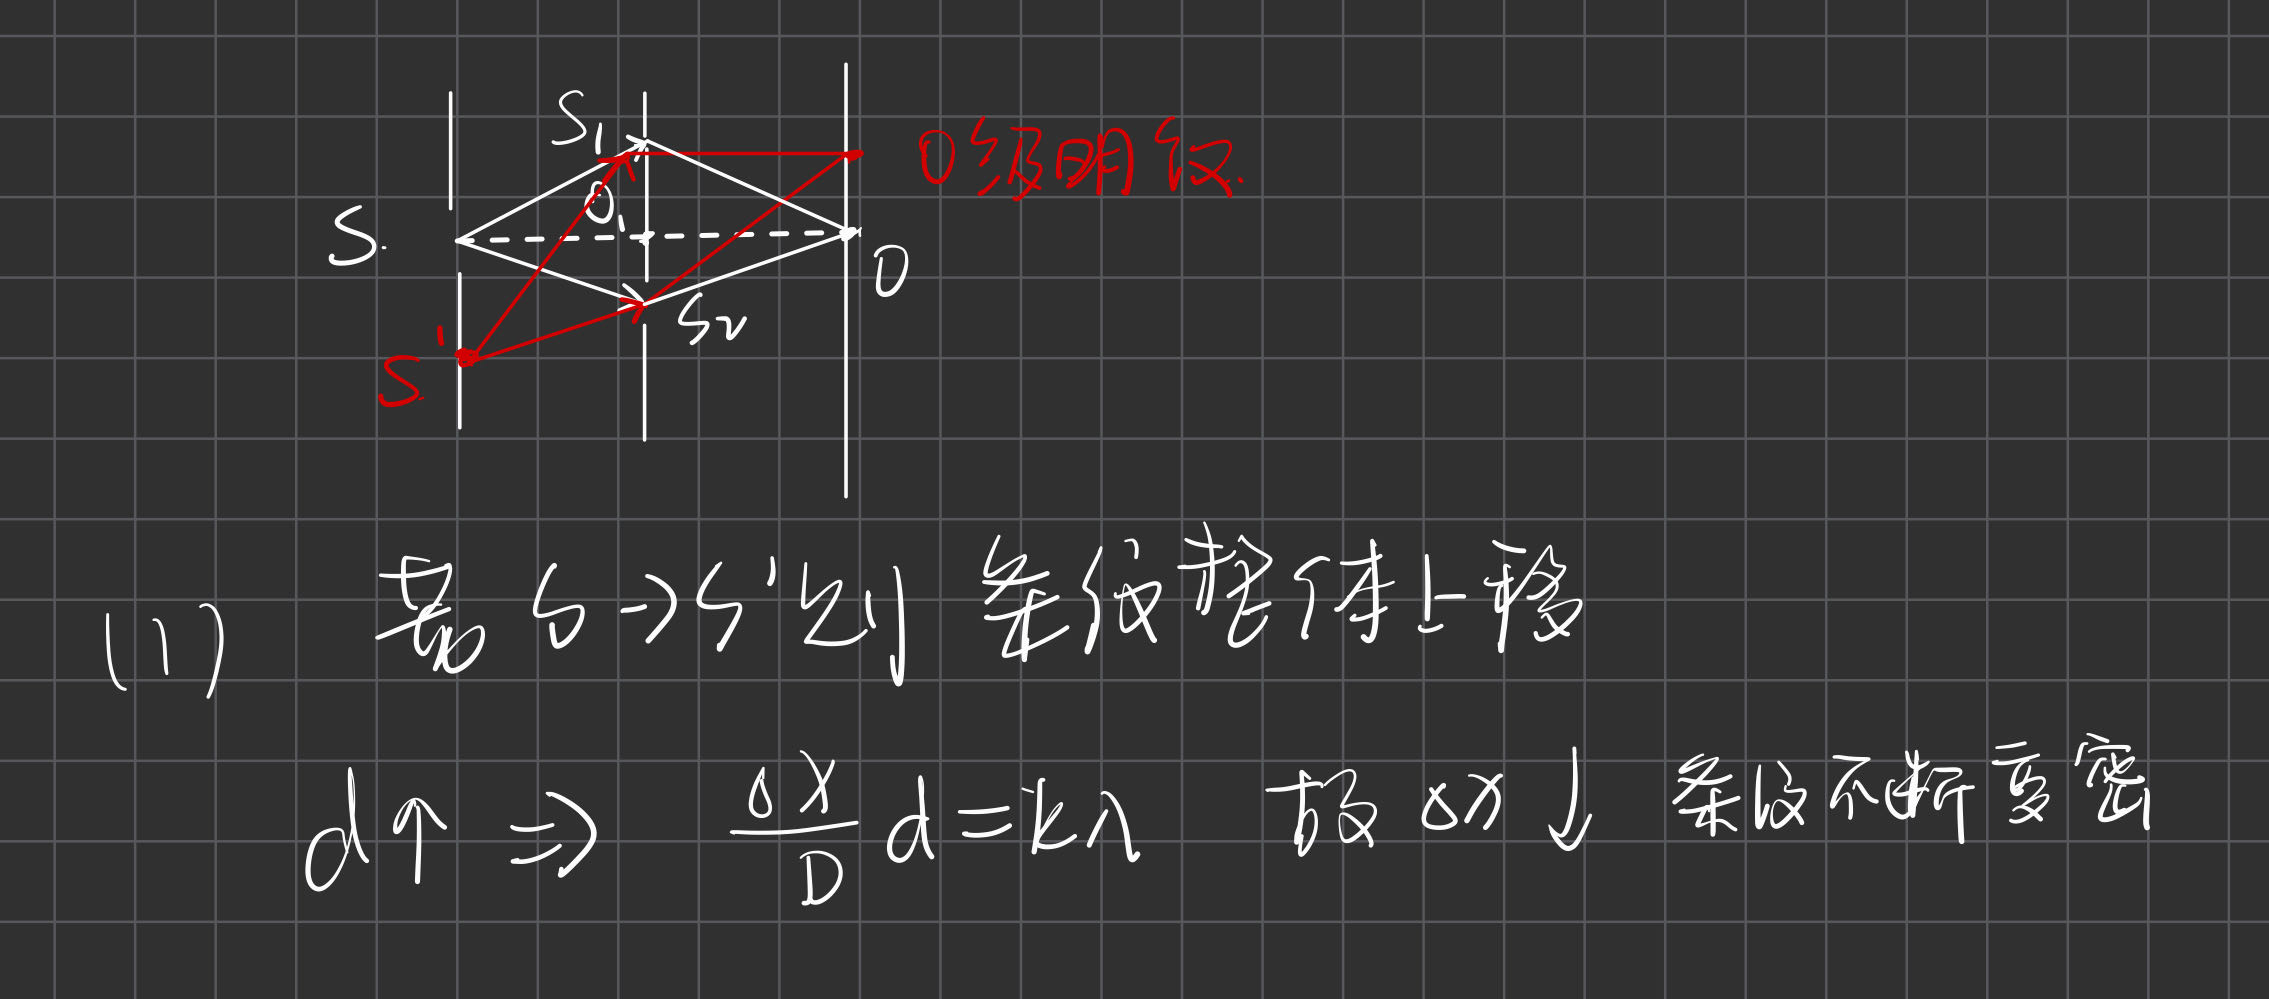 S1
0级明纹.
O1
S.
O
S2
S'
(1) 若 S→S'则 条纹整体上移
d↑ ⇒ ΔX/D d=kλ 故 ΔX↓ 条纹不断变密